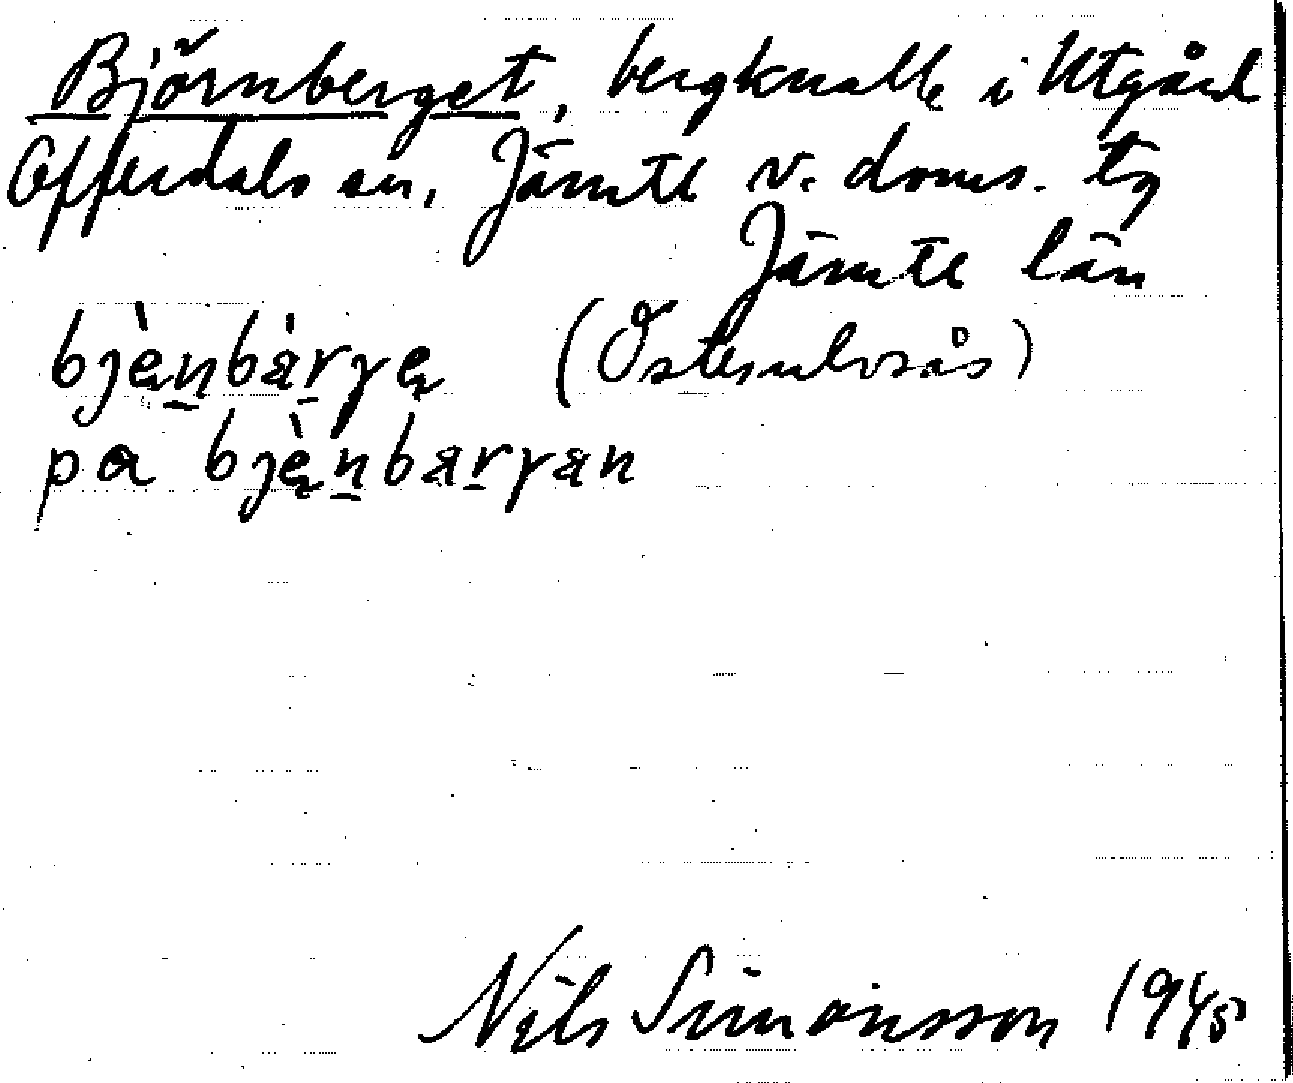 Björnberget, bergknalle i Utgård
Offerdals sn, Jämtl v. doms. tg
Jämtl län
bjèṇbàrγe (Östernlvsås)
pa bjèṇbarγan
Nils Simonsson 1945